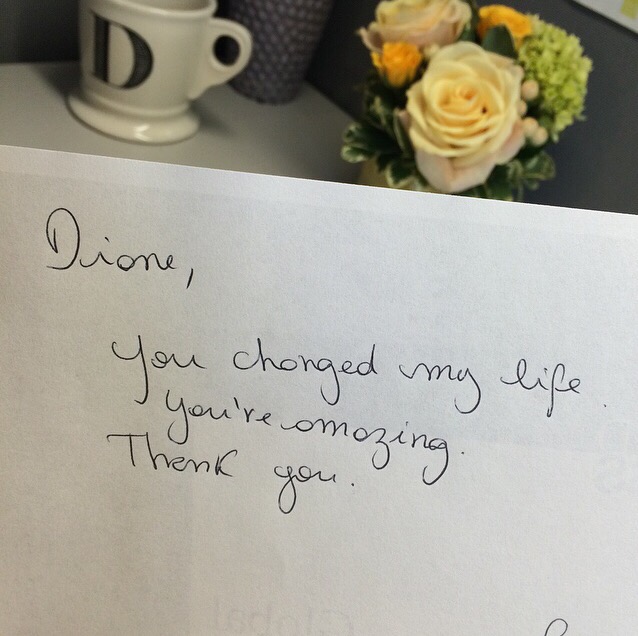 D
Diane,
You changed my life.
You're amazing.
Thank you.
Global